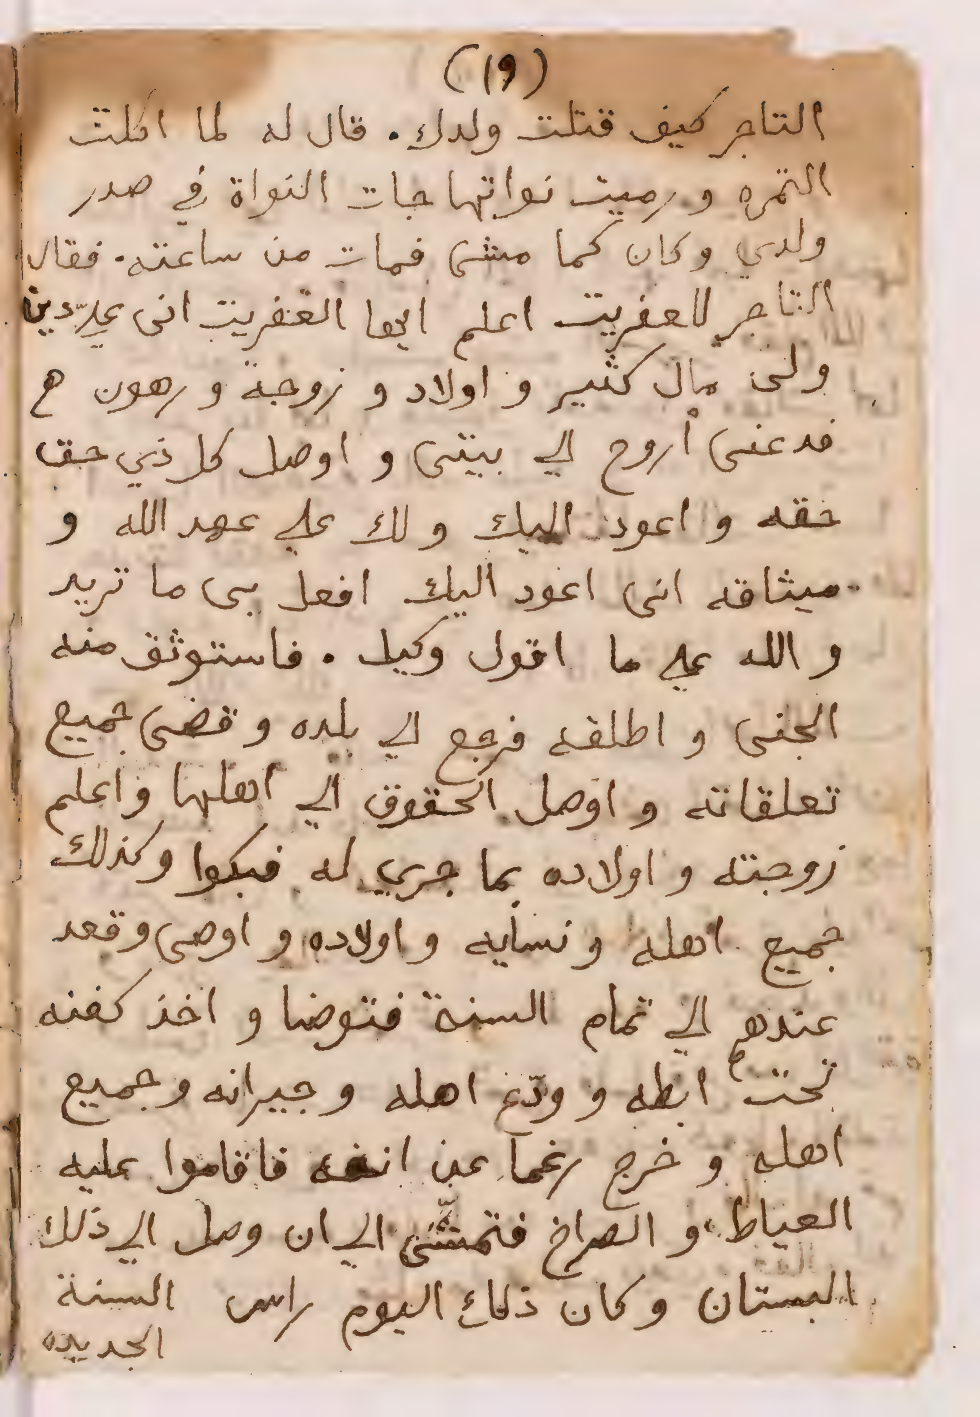 (١٩)
التاجر كيف قتلت ولدك . قال له لما اكلت
التمره و رميت نواتها جات النواة في صدر
ولدي وكان كما مشى فمات من ساعته . فقال
التاجر للعفريت اعلم ايها العفريت انى عليّ دين
ولى مال كثير و اولاد و زوجة و رهون
فدعنى أروح الي بيتى و اوصل كل ذي حق
حقه و اعود اليك و لك علي عهد الله و
ميثاقه انى اعود اليك افعل بى ما تريد
و الله علي ما اقول وكيل . فاستوثق منه
الجنى و اطلقه فرجع الي بلده و قضى جميع
تعلقاته و اوصل الحقوق الي اهلها واعلم
زوجته و اولاده بما جري له فبكوا وكذلك
جميع اهله و نسايه و اولاده و اوصى وقعد
عندهم الي تمام السنة فتوضا و اخذ كفنه
تحت ابطه و ودّع اهله و جيرانه وجميع
اهله و خرج رغما عن انفه فاقاموا عليه
العياط و الصراخ فتمشّى الي ان وصل الي ذلك
البستان وكان ذلك اليوم راس السنة
الجديده